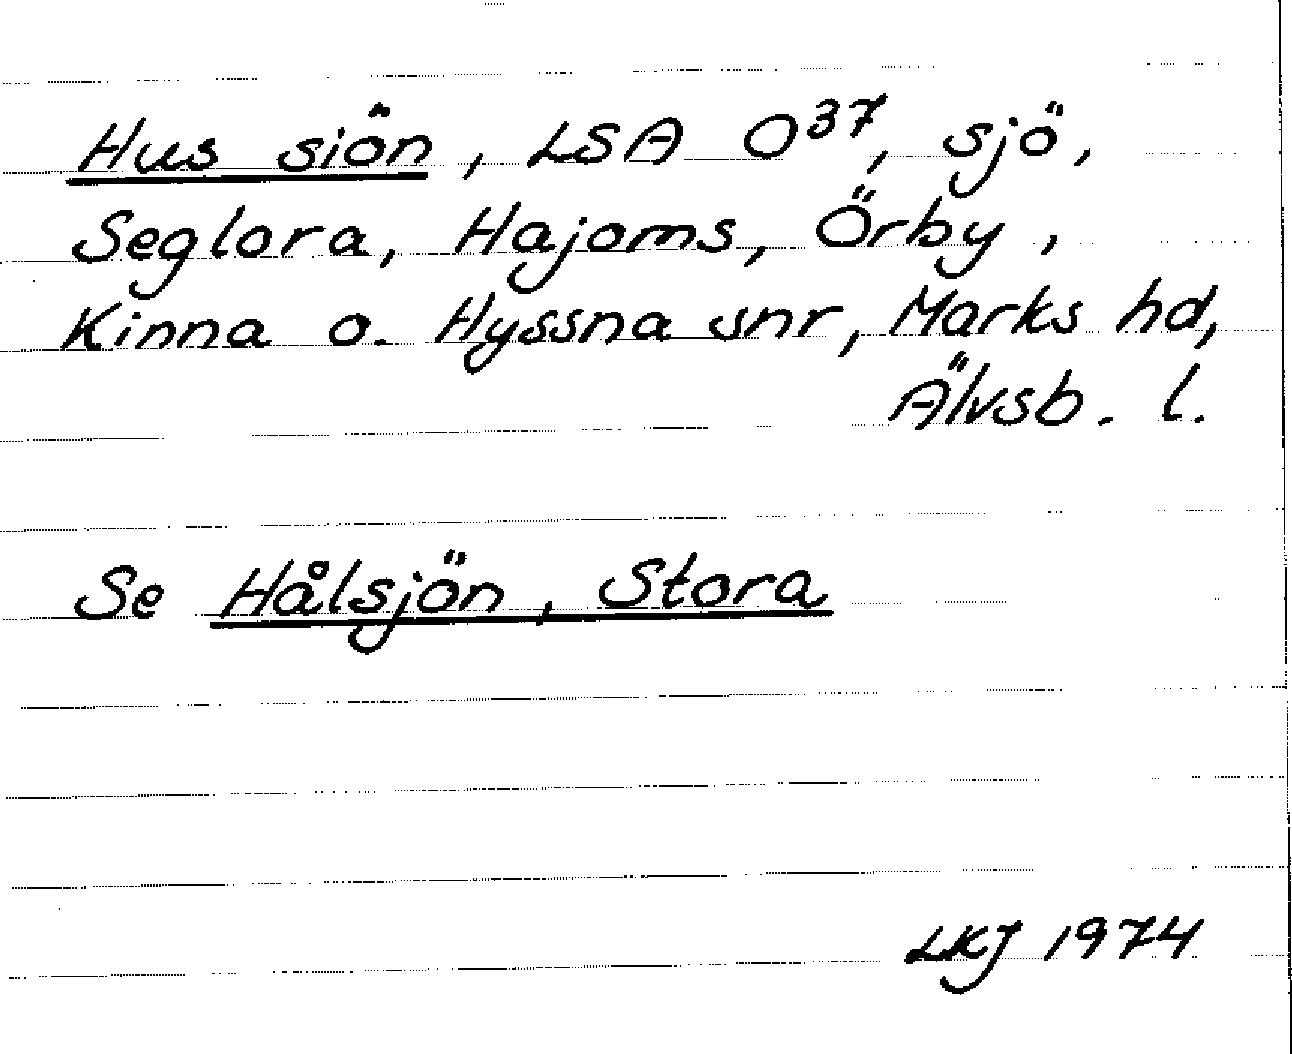 Hus siön, LSA O37, sjö,
Seglora, Hajoms, Örby,
Kinna o. Hyssna snr, Marks hd,
Älvsb. l.
Se Hålsjön, Stora
LKJ 1974